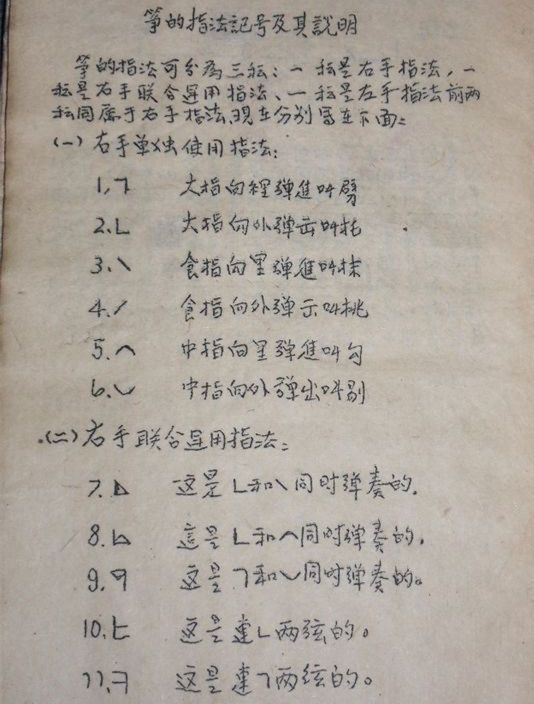 筝的指法記号及其說明
筝的指法可分為三种：一种是右手指法，一
种是右手联合运用指法、一种是左手指法前两
种同属于右手指法现在分别写在下面：
(一) 右手单独使用指法：
1，ㄱ 大指向裡弹進叫劈
2.乚 大指向外弹出叫托
3、㇏ 食指向里弹進叫抹
4.／ 食指向外弹出叫挑
5.へ 中指向里弹進叫勾
6.㇃ 中指向外弹出叫剔
(二) 右手联合运用指法：
7. 这是乚和㇏同时弹奏的.
8. 這是乚和へ同时弹奏的.
9. 这是ㄱ和㇃同时弹奏的。
10. 这是連乚两弦的。
11. 这是連ㄱ两弦的。